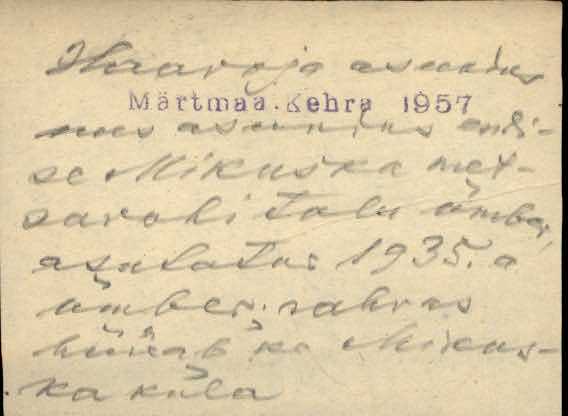 Haavoja asundus
Märtmaa. Kehra 1957
uus asundus endi-
se Mikuska met-
savahi talu ümber,
asutatud 1935. a
ümber. rahvas
hüüab ka Mikus-
ka küla